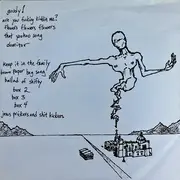 goody!
are you fucking kiddin me?
flowers flowers flowers
that spoken song
downer
keep it in the family
brown paper bag song
ballad of shifty
box 2
box 3
box 4
jesus prickers and shit kickers